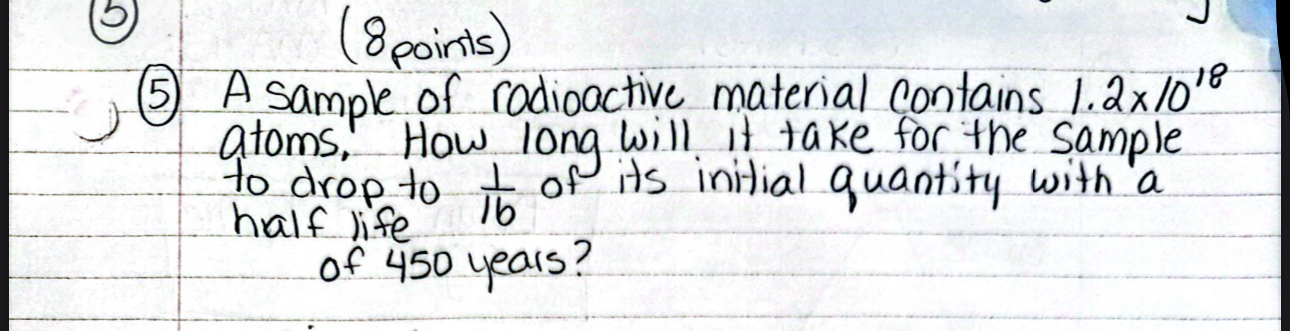 5
(8 points)
5 A sample of radioactive material contains 1.2x10¹⁸
atoms. How long will it take for the sample
to drop to 1/16 of its initial quantity with a
half life
of 450 years?